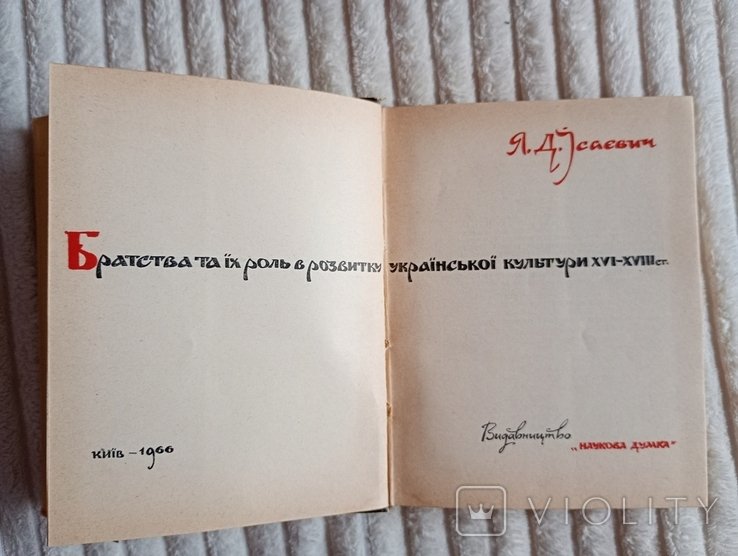 Я. Д. Ісаєвич
Братства та їх роль в розвитку української культури XVI-XVIII ст.
КИЇВ - 1966
Видавництво
„НАУКОВА ДУМКА"
VIOLITY